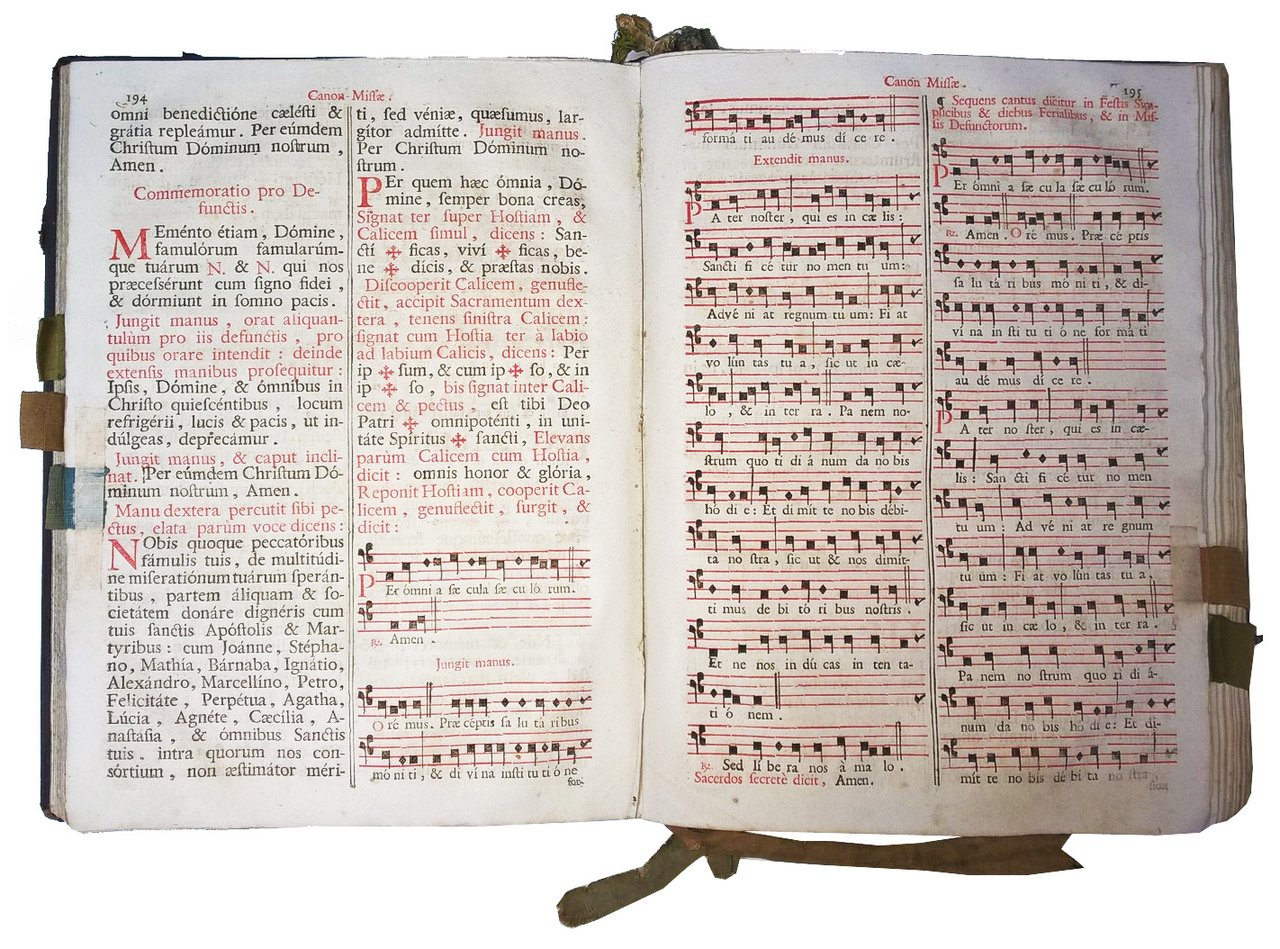 194
Canon Missæ.
omni benedictióne cælésti &
grátia repleámur. Per eúmdem
Christum Dóminum nostrum,
Amen.
Commemoratio pro De-
functis.
MEménto étiam, Dómine,
famulórum famularúm-
que tuárum N. & N. qui nos
præcessérunt cum signo fidei,
& dórmiunt in somno pacis.
Jungit manus, orat aliquan-
tulùm pro iis defunctis, pro
quibus orare intendit: deinde
extensis manibus prosequitur:
Ipsis, Dómine, & ómnibus in
Christo quiescéntibus, locum
refrigérii, lucis & pacis, ut in-
dúlgeas, deprecámur.
Jungit manus, & caput incli-
nat. Per eúmdem Christum Dó-
minum nostrum, Amen.
Manu dextera percutit sibi pe-
ctus, elata parùm voce dicens:
NObis quoque peccatóribus
fámulis tuis, de multitúdi-
ne miseratiónum tuárum sperán-
tibus, partem áliquam & so-
cietátem donáre dignéris cum
tuis sanctis Apóstolis & Mar-
tyribus: cum Joánne, Stépha-
no, Mathía, Bárnaba, Ignátio,
Alexándro, Marcellíno, Petro,
Felicitáte, Perpétua, Agatha,
Lúcia, Agnéte, Cæcília, A-
nastasia, & ómnibus Sanctis
tuis, intra quorum nos con-
sórtium, non æstimátor méri-
ti, sed véniæ, quæsumus, lar-
gítor admítte. Jungit manus.
Per Christum Dóminum no-
strum.
PEr quem hæc ómnia, Dó-
mine, semper bona creas,
Signat ter super Hostiam, &
Calicem simul, dicens: San-
ctí ✠ ficas, viví ✠ ficas, be-
ne ✠ dícis, & præstas nobis.
Discooperit Calicem, genufle-
ctit, accipit Sacramentum dex-
tera, tenens sinistra Calicem:
signat cum Hostia ter à labio
ad labium Calicis, dicens: Per
ip ✠ sum, & cum ip ✠ so, & in
ip ✠ so, bis signat inter Cali-
cem & pectus, est tibi Deo
Patri ✠ omnipoténti, in uni-
táte Spíritus ✠ sancti, Elevans
parùm Calicem cum Hostia,
dicit: omnis honor & glória,
Reponit Hostiam, cooperit Ca-
licem, genuflectit, surgit, &
dicit:
PEr ómni a sæ cula sæ cu ló rum.
℟. Amen.
Jungit manus.
O ré mus. Præ céptis sa lu tá ribus
mó ni ti, & di ví na insti tu ti ó ne
for-
Canon Missæ.
195
formá ti au dé mus dí ce re.
Extendit manus.
PA ter noster, qui es in cæ lis:
Sancti fi cé tur no men tu um:
Advé ni at regnum tu um: Fi at
vo lún tas tu a, sic ut in cæ-
lo, & in ter ra. Pa nem no-
strum quo ti di á num da no bis
hó di e: Et di mít te no bis débi-
ta no stra, sic ut & nos dimít-
ti mus de bi tó ri bus nostris.
Et ne nos in dú cas in ten ta-
ti ó nem.
℟. Sed lí be ra nos à ma lo.
Sacerdos secrete dicit, Amen.
¶ Sequens cantus dicitur in Festis Sim-
plicibus & diebus Ferialibus, & in Mis-
sis Defunctorum.
PEr ómni a sæ cu la sæ cu ló rum.
℟. Amen. O ré mus. Præ cé ptis
sa lu tá ri bus mó ni ti, & di-
ví na in sti tu ti ó ne for má ti
au dé mus dí ce re.
PA ter no ster, qui es in cæ-
lis: San cti fi cé tur no men
tu um: Ad vé ni at re gnum
tu um: Fi at vo lún tas tu a,
sic ut in cæ lo, & in ter ra.
Pa nem no strum quo ti di á-
num da no bis hó di e: Et di-
mít te no bis dé bi ta no stra,